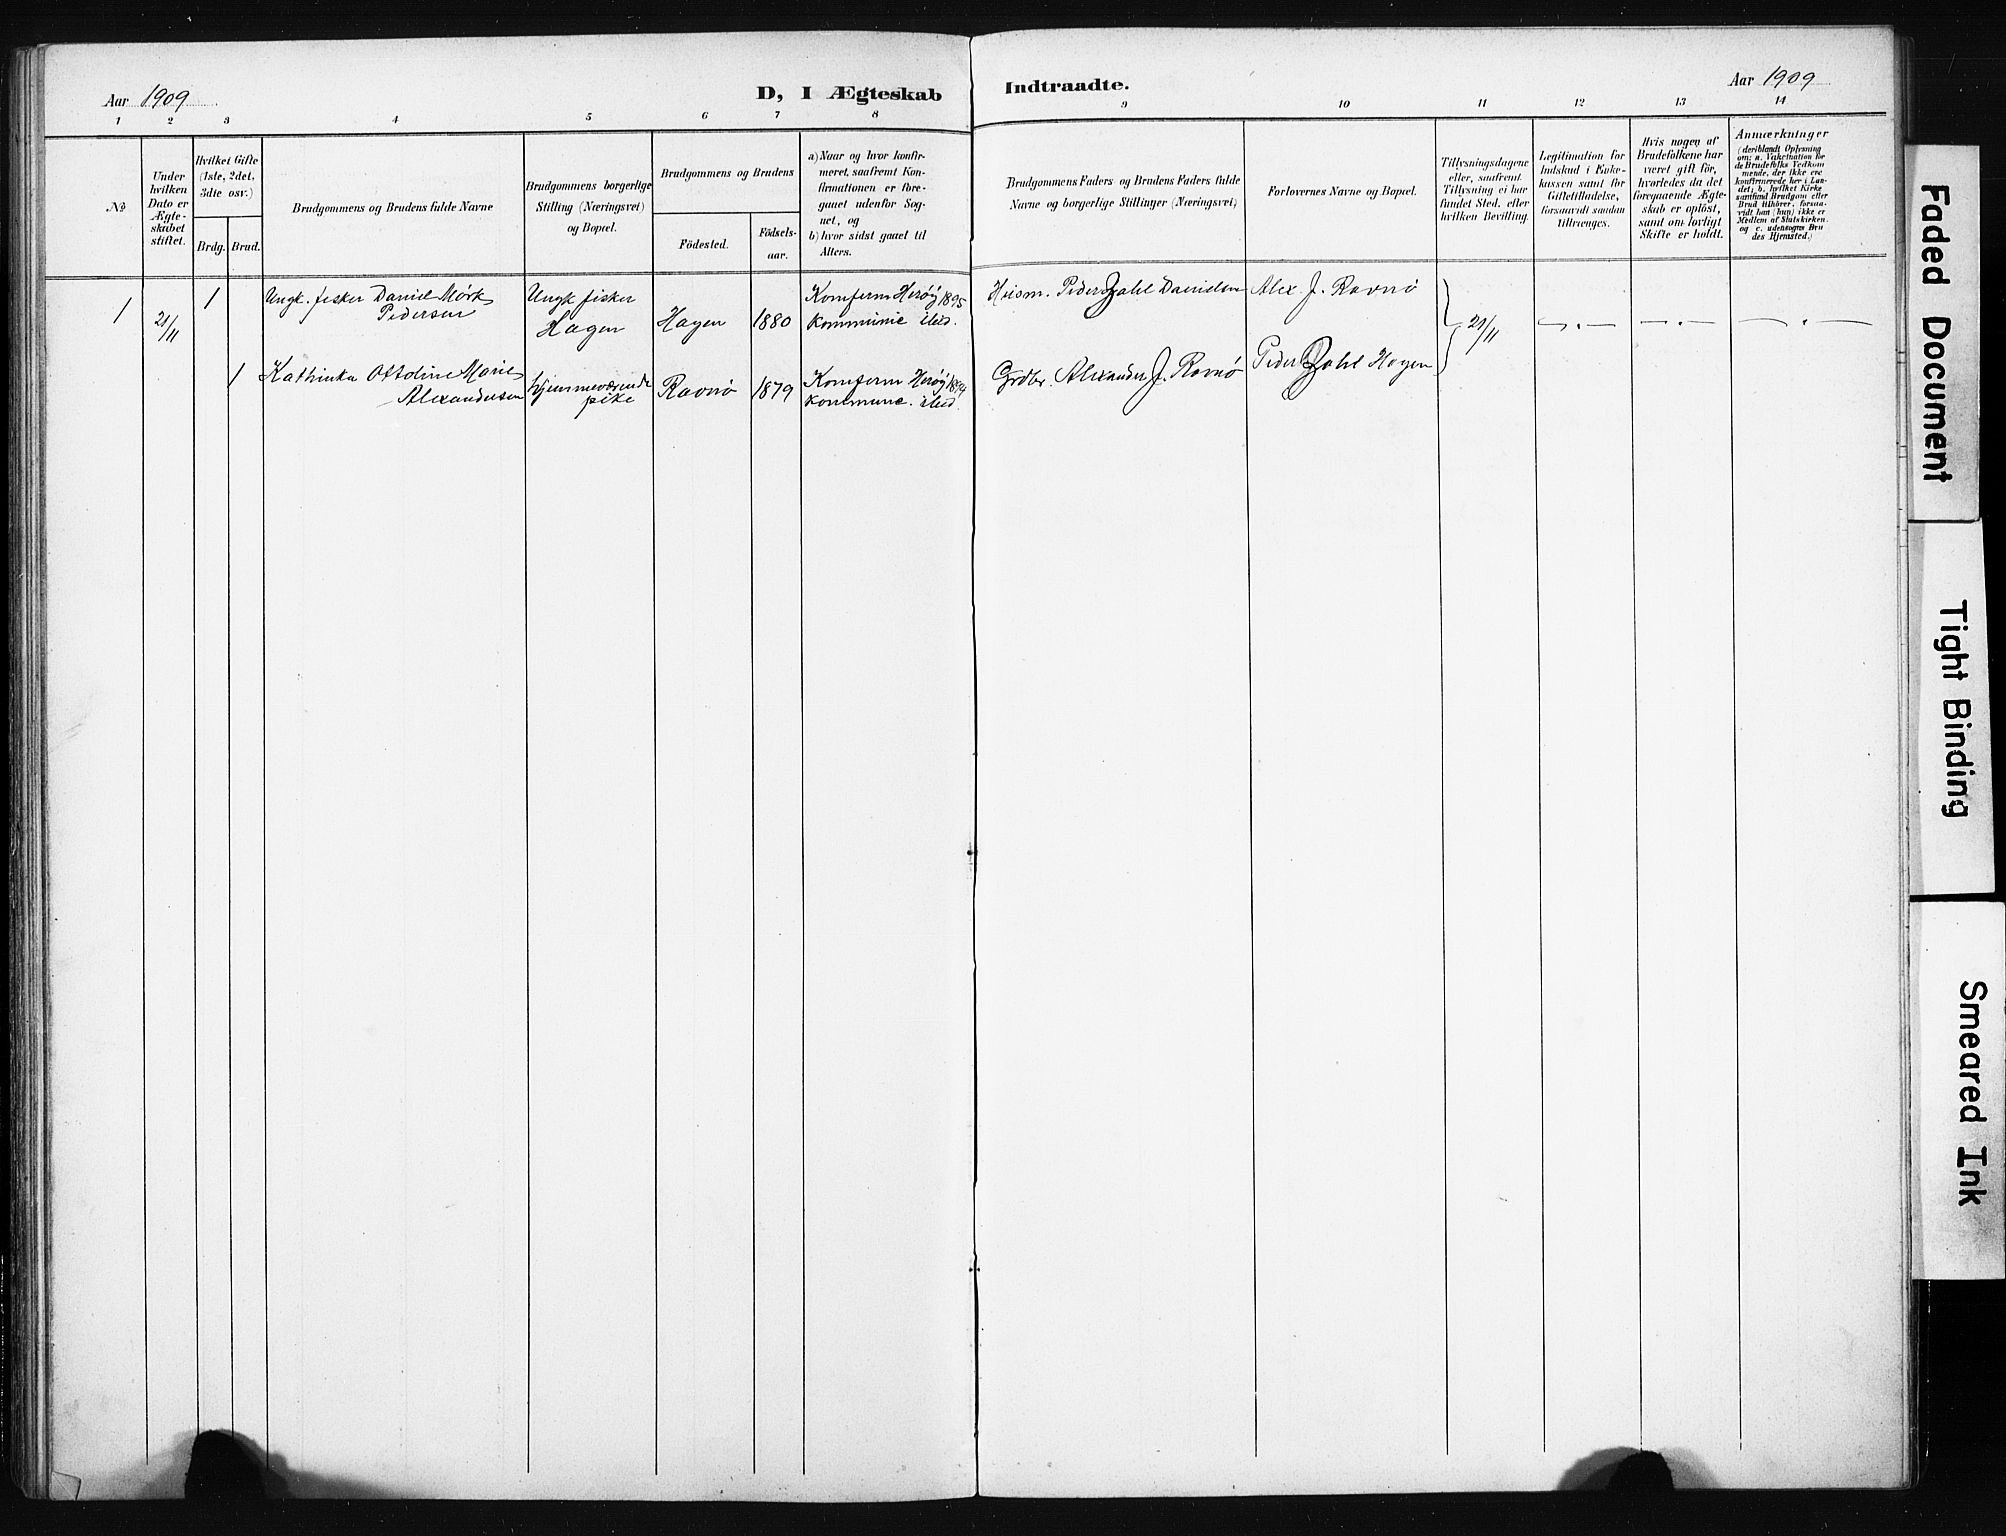 Aar 1909
D, I Ægteskab
Indtraadte.
Aar 1909
1 2 3 4 5 6 7 8 9 10 11 12 13 14
No
Under
hvilken
Dato er
Ægte-
skabet
stiftet.
Hvilket Gifte
(1ste, 2det,
3dte osv.)
Brdg. Brud.
Brudgommens og Brudens fulde Navne
Brudgommens borgerlige
Stilling (Næringsvei)
og Bopæl.
Brudgommens og Brudens
Födested.
Födsels-
aar.
a) Naar og hvor konfir-
meret, saafremt Kon-
firmationen er fore-
gaaet udenfor Sog-
net, og
b) hvor sidst gaaet til
Alters.
Brudgommens Faders og Brudens Faders fulde
Navne og borgerlige Stillinger (Næringsvei)
Forlovernes Navne og Bopæl.
Tillysningsdagene
eller, saafremt
Tillysning ei har
fundet Sted, efter
hvilken Bevilling.
Legitimation for
Indskud i Enke-
kassen samt for
Giftetilladelse,
forsaavidt saadan
tiltrænges.
Hvis nogen af
Brudefolkene har
været gift för,
hvorledes da det
foregaaende Ægte-
skab er oplöst,
samt om lovligt
Skifte er holdt.
Anmærkninger
(deriblandt Oplysning
om: a. Vakcination for
de Brudefolks Vedkom
mende, der ikke ere
konfirmerede her i Lan-
det; b. hvilket Kirke
samfund Brudgom eller
Brud tilhörer, forsaa-
vidt han (hun) ikke er
Medlem af Statskirken.
og c. udensogns Bru
des Hjemsted.)
1 21/11 1 Ungk. fisker Daniel Mørk
Pedersen
Ungk fisker
Hagen
Hagen 1880
Komferm Herøy 1895
kommunie ibid.
Husm. Peder Zahl Danielsen
Alex J. Ravnø
21/11
1 Kathinka Ottoline Marie
Alexandersen
hjemmeværende
pike
Ravnø 1879
Komferm Herøy 1894
kommunie. ibid.
Grdbr. Alexander J. Ravnø
Peder Zahl Hagen
Faded Document
Tight Binding
Smeared Ink